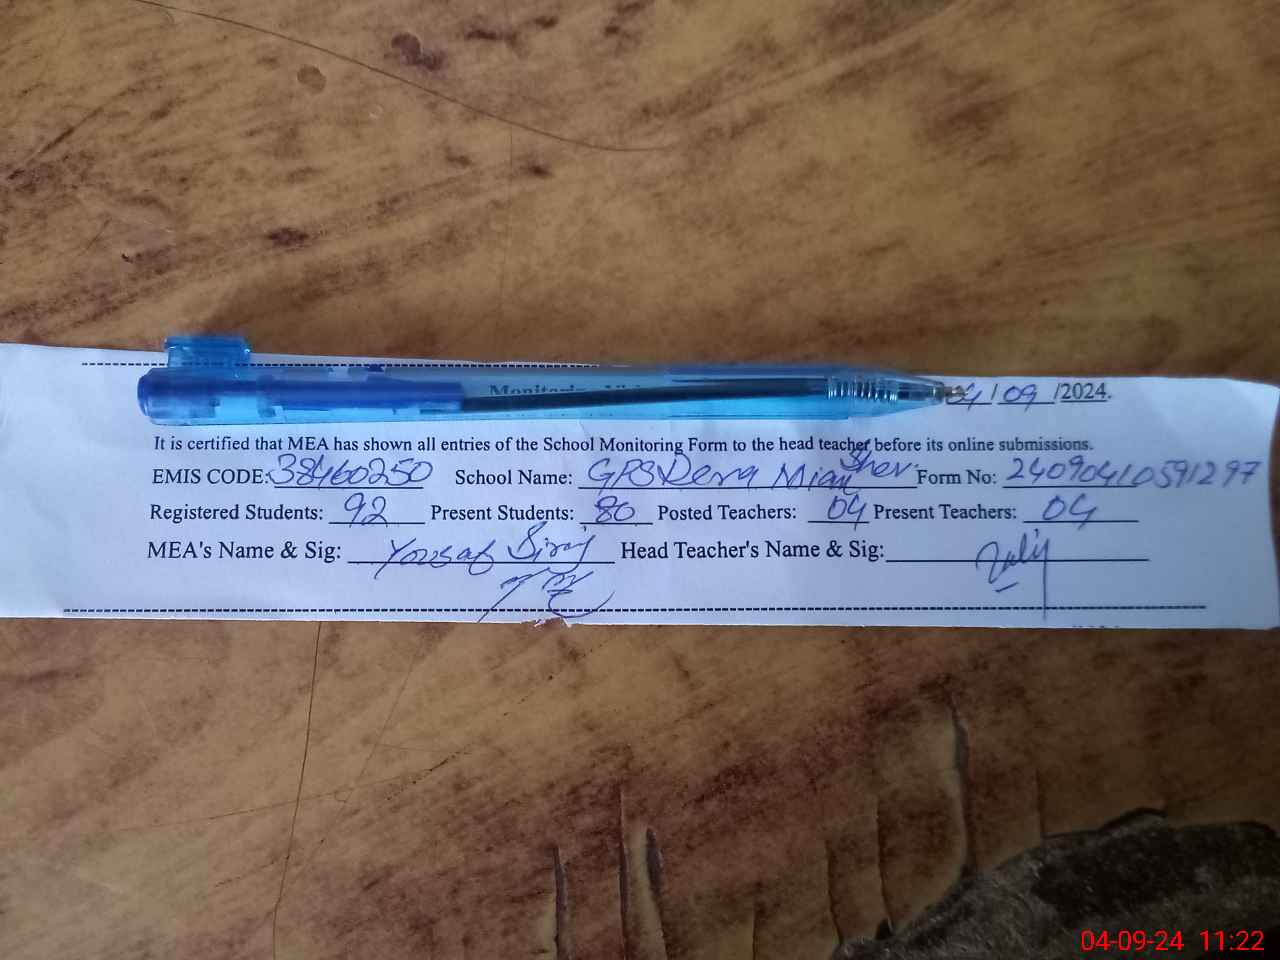 04/09/2024.
It is certified that MEA has shown all entries of the School Monitoring Form to the head teacher before its online submissions.
EMIS CODE: 38460250 School Name: GPS Dera Mian Sher Form No: 24090410591297
Registered Students: 92 Present Students: 80 Posted Teachers: 04 Present Teachers: 04
MEA's Name & Sig: Yousaf Siraj Head Teacher's Name & Sig:
04-09-24 11:22